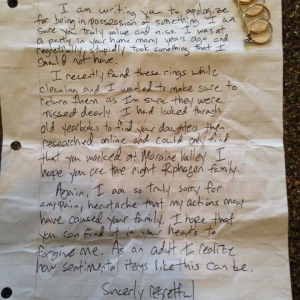 I am writing you to apologize
for being in possession of something I am
sure you truly value and miss. I was at
a party in your home many years ago and
regretfully, stupidly took something that I
should not have.
I recently found these rings while
cleaning and I wanted to make sure to
return them as I'm sure they were
missed dearly. I had looked through
old yearbooks to find your daughters then
researched online and could only find
that you worked at Moraine Valley. I
hope you are the right family.
Again, I am so truly sorry for
any pain, heartache that my actions may
have caused your family. I hope that
you can find it in your hearts to
forgive me. As an adult I realize
how sentimental items like this can be.
Sincerly regretful